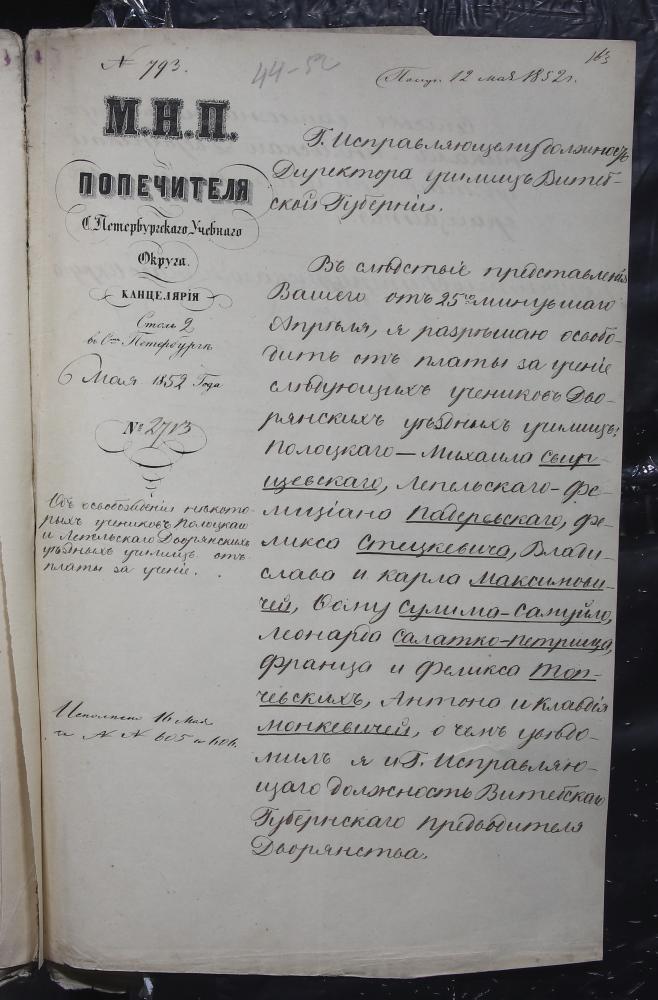 № 793.
44-52
Получ. 12 мая 1852 г.
163
М.Н.П.
ПОПЕЧИТЕЛЯ
С. Петербургскаго Учебнаго
Округа.
КАНЦЕЛЯРІЯ
Столъ 2
въ С. Петербургѣ
6 Мая 1852 Года
№ 2713
Объ освобожденіи нѣкото-
рыхъ учениковъ Полоцкаго
и Лепельскаго Дворянскихъ
уѣздныхъ училищъ отъ
платы за ученіе.
Исполнено 16 Мая
за № № 605 и 606.
Г. Исправляющему должность
Директора училищъ Витеб-
ской Губерніи.
Въ слѣдствіе представленія
Вашего отъ 25го минувшаго
Апрѣля, я разрѣшаю освобо-
дить отъ платы за ученіе
слѣдующихъ учениковъ Дво-
рянскихъ уѣздныхъ училищъ:
Полоцкаго — Михаила Свир-
щевскаго, Лепельскаго — Фе-
лиціана Падеревскаго, Фе-
ликса Стецкевича, Влади-
слава и Карла Максимови-
чей, Ѳому Сулима-Самуйло,
Леонарда Салатко-Петрища,
Франца и Феликса Топ-
чевскихъ, Антона и Клавдія
Монкевичей, о чемъ увѣдо-
милъ я и Г. Исправляю-
щаго должность Витебскаго
Губернскаго Предводителя
Дворянства.